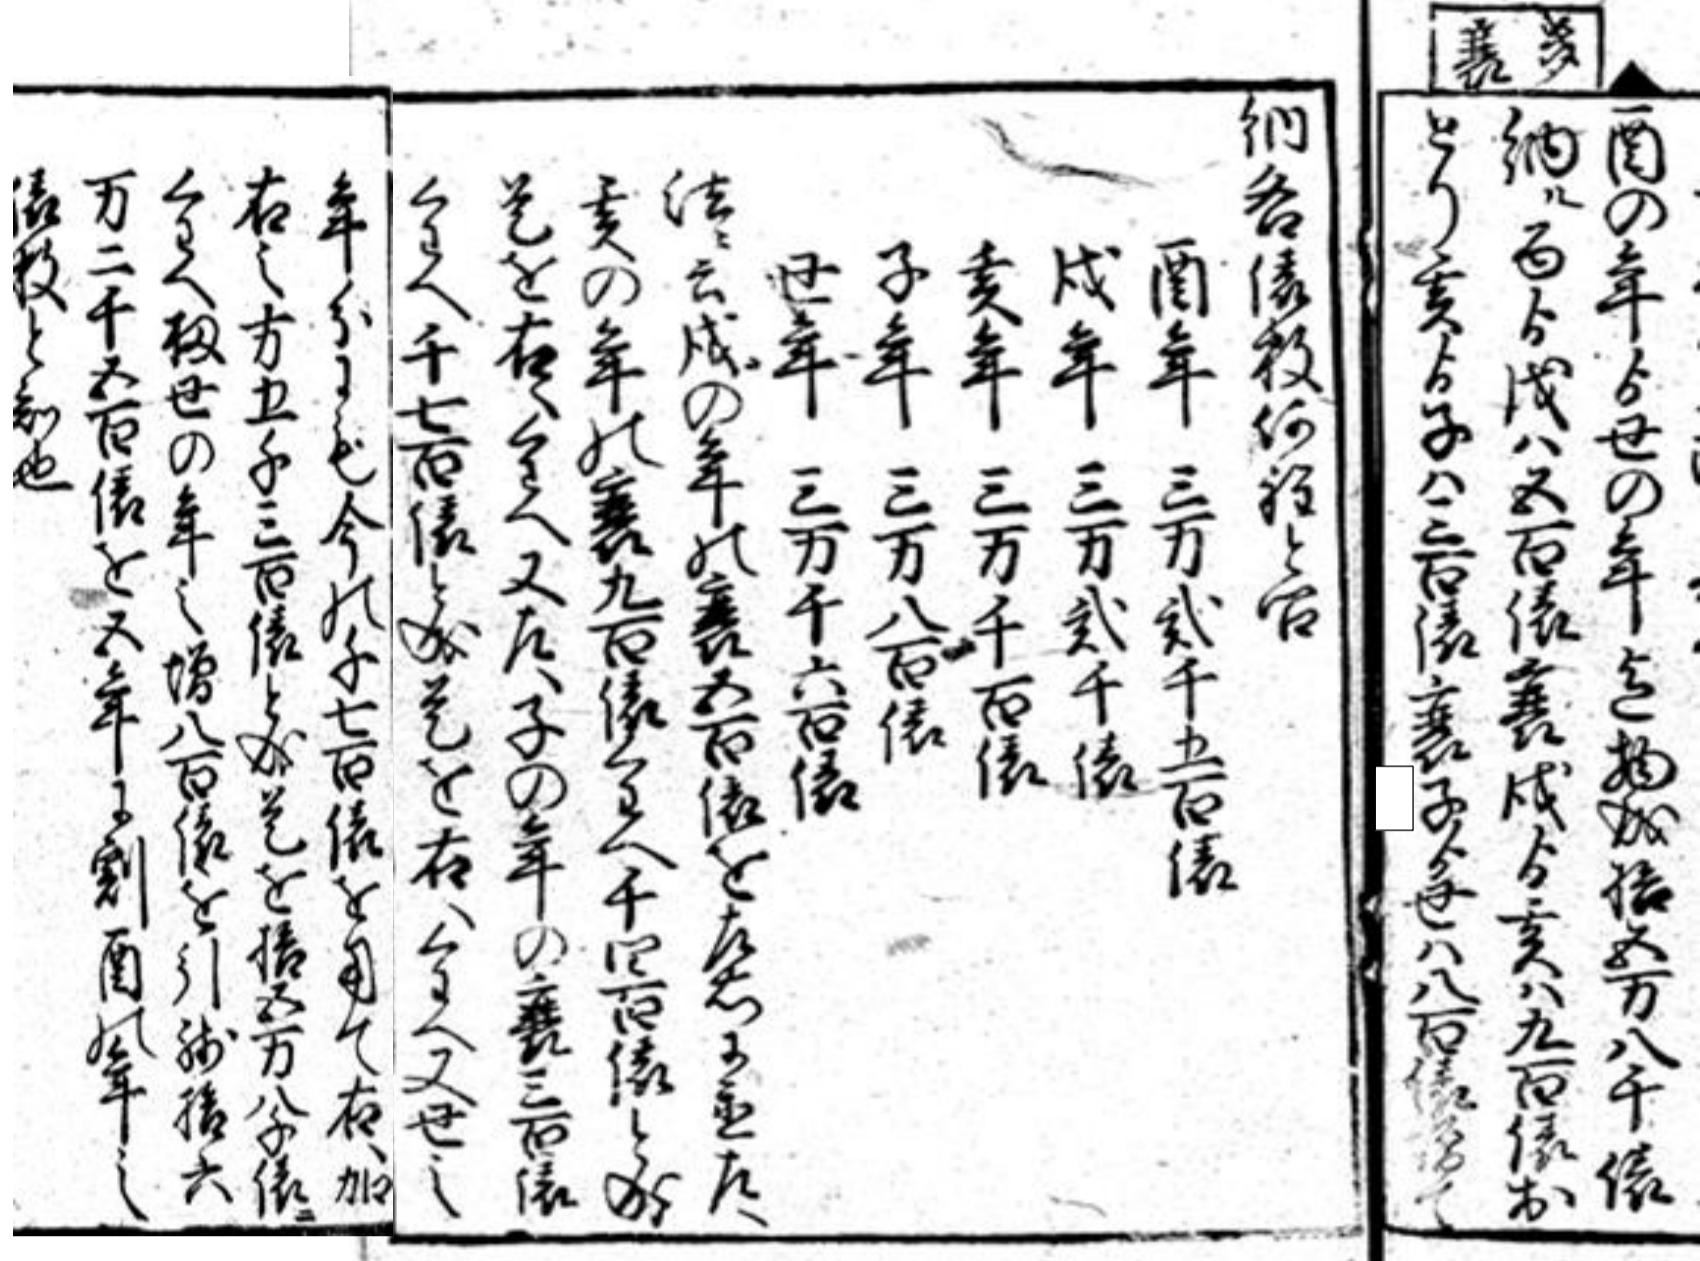 多衰
酉の年ゟ丑の年迄物成拾五万八千俵
納ル酉ゟ戌ハ五百俵衰戌ゟ亥ハ九百俵お
とり亥ゟ子ハ三百俵衰子ゟ丑ハ八百俵増て
納各俵数何程と問
酉年 三万弐千五百俵
戌年 三万弐千俵
亥年 三万千百俵
子年 三万八百俵
丑年 三万千六百俵
法ニ云戌の年の衰五百俵を左右に置左へ
亥の年の衰九百俵くわへ千四百俵と成
是を右へくわへ又左へ子の年の衰三百俵
くわへ千七百俵と成是を右へくわへ又丑之
年分にも今の千七百俵を用て右へ加
右之方五千三百俵と成是を拾五万八千俵ニ
くわへ扨丑の年之増八百俵を引残拾六
万二千五百俵を五年に割酉の年之
俵数と知也